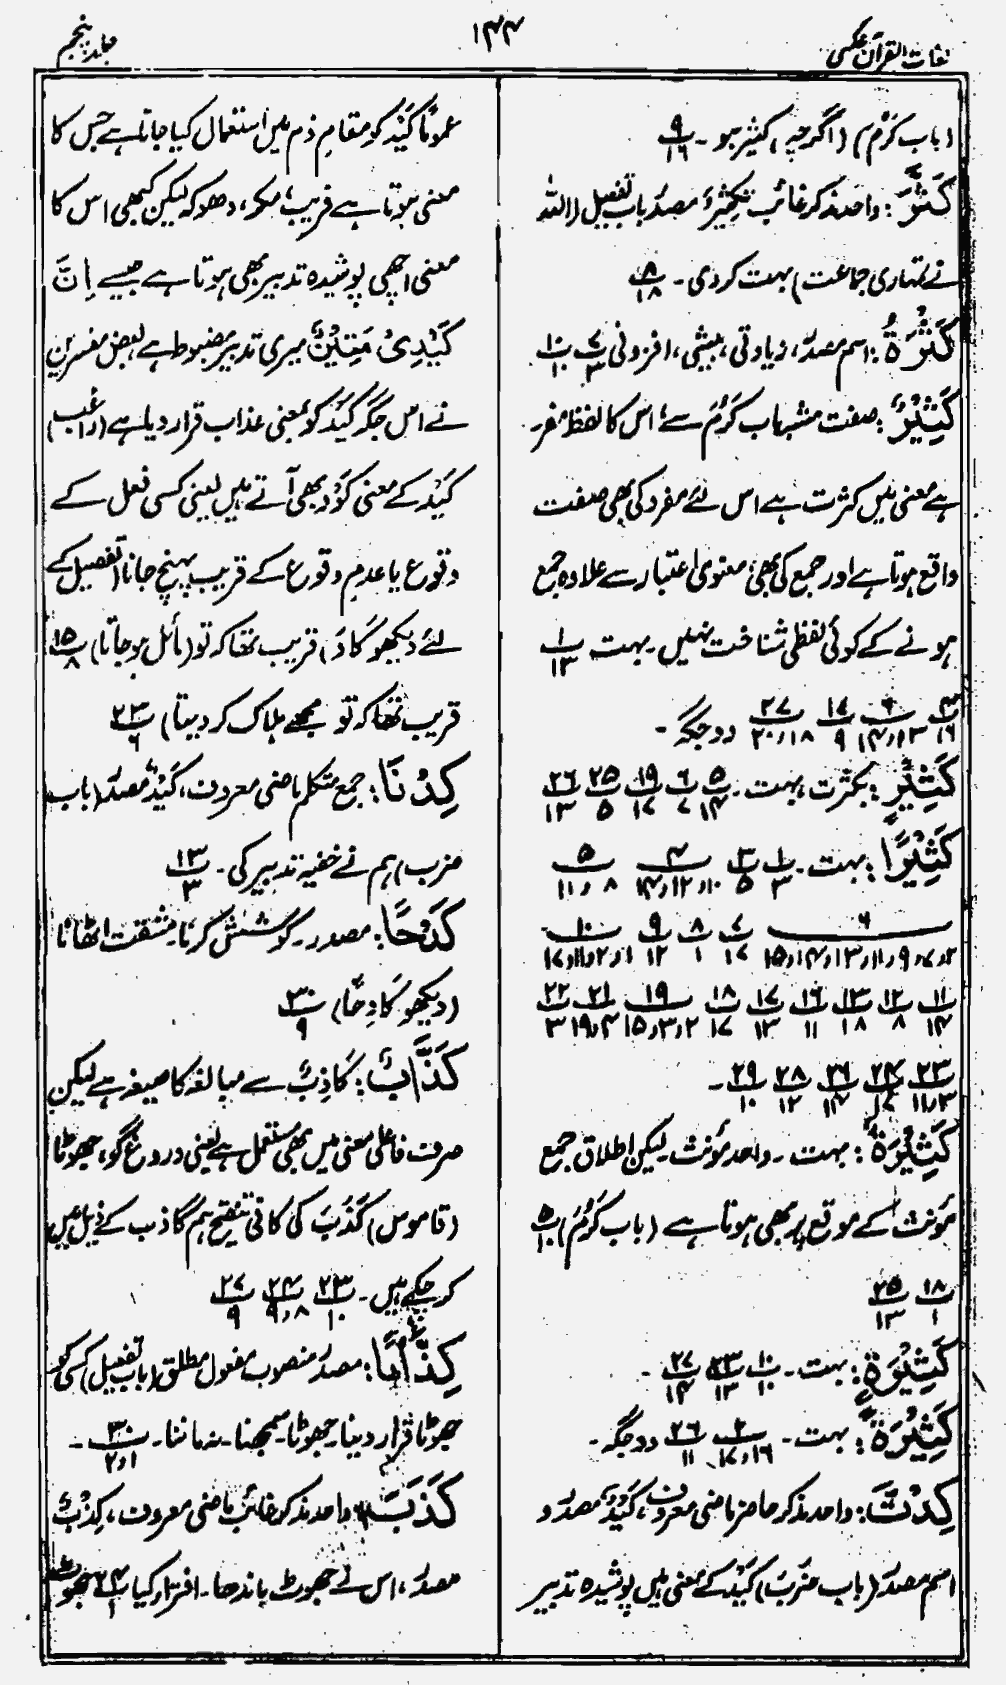 لغات القرآن عکسی
۱۴۴
جلد پنجم
(باب کَرُمَ) (اگرچہ) کثیر ہو۔ ۹/۱۶
کَثَّرَ: واحد مذکر غائب تکثیرٌ مصدر باب تفعیل (اللہ
نے تمہاری جماعت) بہت کر دی۔ ۸/۱۸
کَثْرَۃُ: اسم مصدر، زیادتی، بیشی، افزونی ۷/۳ ۱۰/۱۰
کَثِیْرٌ: صفت مشبہ باب کَرُمَ سے، اس کا لفظ مفرد
ہے معنی میں کثرت ہے اس لئے مفرد کی بھی صفت
واقع ہوتا ہے اور جمع کی بھی، معنوی اعتبار سے علاوہ جمع
ہونے کے کوئی لفظی شناخت نہیں۔ بہت ۱/۱۳
۴/۱۶ ۶/۱۳و۱۴ ۱۷/۹ ۲۷/۱۸و۲۰ دو جگہ۔
کَثِیْرٍ: بکثرت، بہت۔ ۵/۱۴ ۶/۷ ۱۹/۱۷ ۲۵/۵ ۲۶/۱۳
کَثِیْرًا: بہت۔ ۱/۳ ۳/۵ ۴/۱۰و۱۲و۱۴ ۵/۸و۱۱
۶/۲و۷و۹و۱۱و۱۳و۱۴و۱۵ ۷/۱۷ ۸/۱ ۹/۱۲ ۱۰/۱و۲و۱۱و۱۷
۱۱/۱۴ ۱۲/۸ ۱۳/۱۸ ۱۶/۱۱ ۱۷/۱۳ ۱۸/۱۷ ۱۹/۲و۳و۱۵ ۲۱/۴و۱۹ ۲۲/۳
۲۳/۳و۱۱ ۲۴/۱۷ ۲۶/۱۴ ۲۸/۱۲ ۲۹/۱۰۔
کَثِیْرَۃٌ: بہت۔ واحد مؤنث۔ لیکن اطلاق جمع
مؤنث کے موقع پر بھی ہوتا ہے (باب کَرُمَ) ۵/۱۰
۱۸/۱ ۲۵/۱۳
کَثِیْرَۃٍ: بہت۔ ۱۰/۱۰ ۲۳/۱۳ ۲۷/۱۴۔
کَثِیْرَۃً: بہت۔ ۲/۱۶و۱۷ ۲۶/۱۱ دو جگہ۔
کِدْتَّ: واحد مذکر حاضر ماضی معروف، کَیْدٌ مصدر و
اسم مصدر (باب ضَرَبَ) کَیْد کے معنی ہیں پوشیدہ تدبیر
عمومًا کَیْد کو مقامِ ذم میں استعمال کیا جاتا ہے جس کا
معنی ہوتا ہے فریب، مکر، دھوکہ لیکن کبھی اس کا
معنی اچھی پوشیدہ تدبیر بھی ہوتا ہے جیسے اِنَّ
کَیْدِیْ مَتِیْنٌ میری تدبیر مضبوط ہے، بعض مفسرین
نے اس جگہ کَیْد کو بمعنی عذاب قرار دیا ہے (راغب)
کَیْد کے معنی کَوْد بھی آتے ہیں یعنی کسی فعل کے
وقوع یا عدمِ وقوع کے قریب پہنچ جانا (تفصیل کے
لئے دیکھو کَادَ) قریب تھا کہ تو (مائل ہو جاتا) ۱۵/۸
قریب تھا کہ تو مجھے ہلاک کر دیتا) ۲۳/۶
کِدْنَا: جمع متکلم ماضی معروف، کَیْدٌ مصدر (باب
ضرب) ہم نے خفیہ تدبیر کی۔ ۱۳/۳
کَدْحًا: مصدر۔ کوشش کرنا۔ مشقت اٹھانا
(دیکھو کَادِحًا) ۳۰/۹
کَذَّابٌ: کَاذِبٌ سے مبالغہ کا صیغہ ہے لیکن
صرف فاعلی معنی میں بھی مستعمل ہے یعنی دروغ گو، جھوٹا
(قاموس) کَذَبَ کی کافی تنقیح ہم کاذب کے ذیل میں
کر چکے ہیں۔ ۲۳/۱۰ ۲۴/۸و۹ ۲۷/۹
کِذَّابًا: مصدر منصوب مفعول مطلق (باب تفعیل) کسی کو
جھوٹا قرار دینا۔ جھوٹا سمجھنا۔ نہ ماننا۔ ۳۰/۱و۲۔
کَذَبَ: واحد مذکر غائب ماضی معروف، کِذْبٌ
مصدر، اس نے جھوٹ باندھا۔ افترا کیا ۲۴/۱ جھوٹ